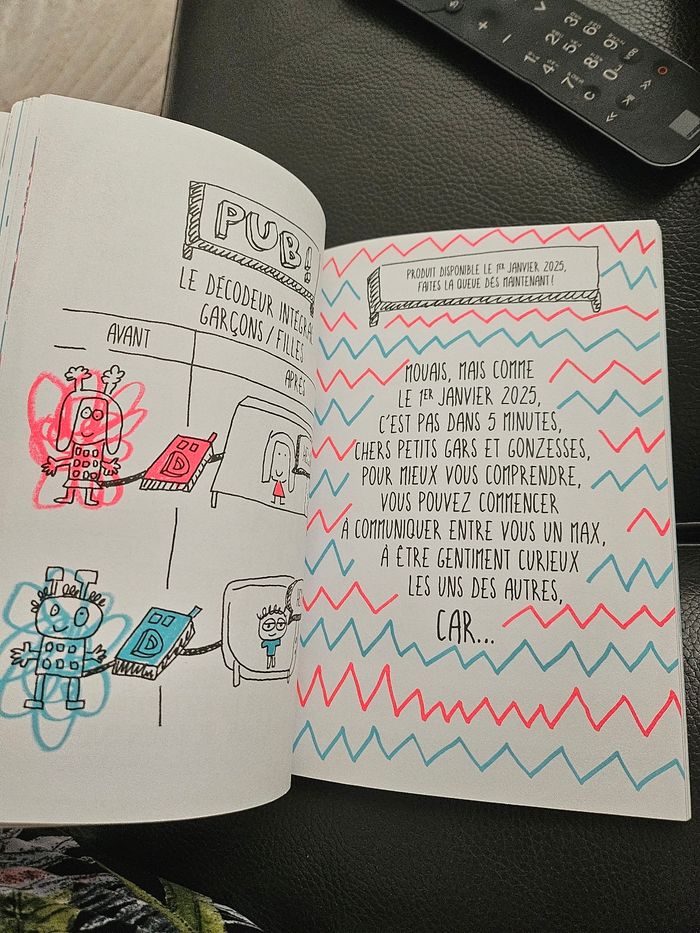 PUB!
LE DÉCODEUR INTÉGRAL
GARÇONS / FILLES
AVANT
APRÈS
D
D
PRODUIT DISPONIBLE LE 1ER JANVIER 2025,
FAITES LA QUEUE DÈS MAINTENANT !
MOUAIS, MAIS COMME
LE 1ER JANVIER 2025,
C'EST PAS DANS 5 MINUTES,
CHERS PETITS GARS ET GONZESSES,
POUR MIEUX VOUS COMPRENDRE,
VOUS POUVEZ COMMENCER
À COMMUNIQUER ENTRE VOUS UN MAX,
À ÊTRE GENTIMENT CURIEUX
LES UNS DES AUTRES,
CAR...